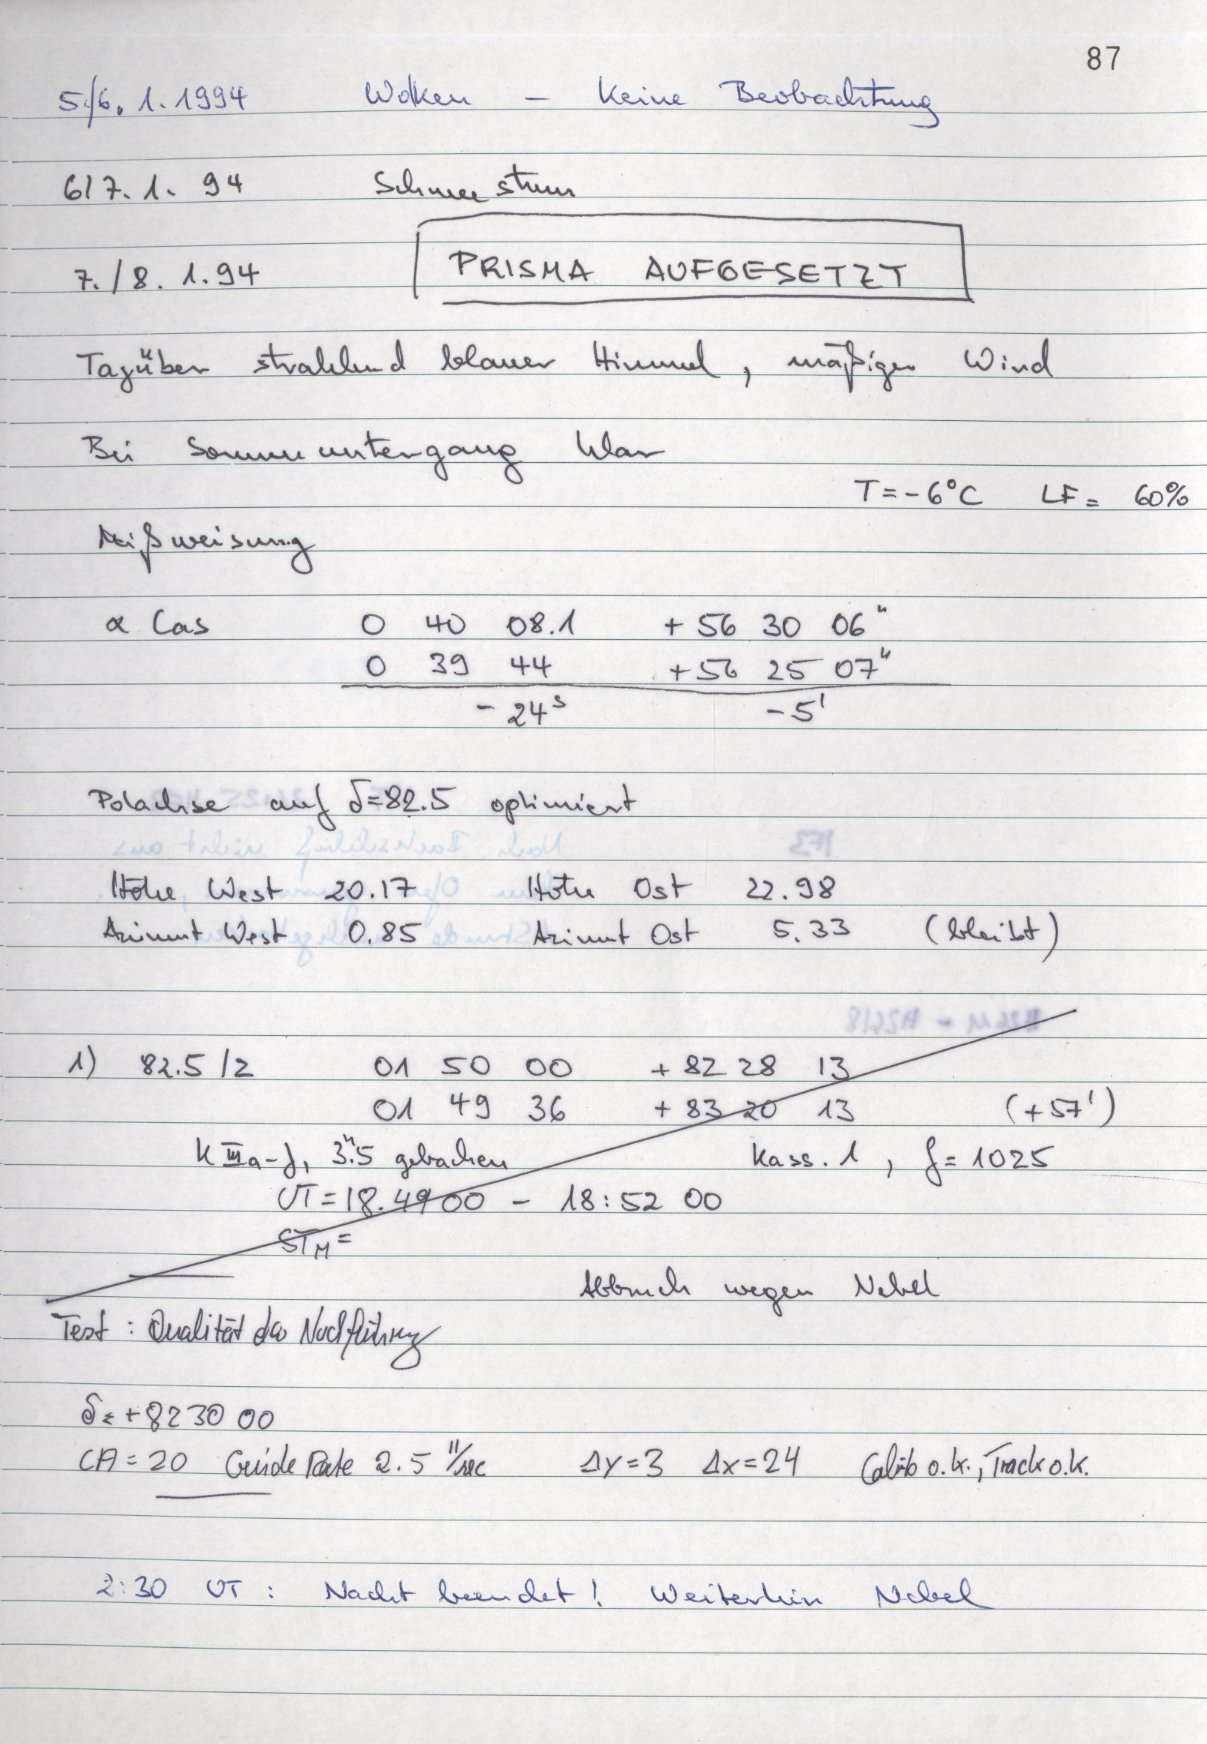 87
5./6. 1. 1994 Wolken – Keine Beobachtung
6/7. 1. 94 Schneesturm
7./8. 1. 94 PRISMA AUFGESETZT
Tagüber strahlend blauer Himmel, mäßiger Wind
Bei Sonnenuntergang klar
T = -6°C LF = 60%
Mißweisung
α Cas 0 40 08.1 + 56 30 06"
0 39 44 + 56 25 07"
- 24ˢ - 5'
Polachse auf δ=82.5 optimiert
Höhe West 20.17 Höhe Ost 22.98
Azimut West 0.85 Azimut Ost 5.33 (bleibt)
1) 82.5/2 01 50 00 + 82 28 13
01 49 36 + 83 20 13 (+57')
K IIIa-J, 3".5 gebacken Kass. 1, f = 1025
UT = 18.49 00 – 18:52 00
STM =
Abbruch wegen Nebel
Test: Qualität der Nachführung
δ = +82 30 00
CA = 20 Guide Rate 2.5 "/sec Δy=3 Δx=24 Calib o.k., Track o.k.
2:30 UT : Nacht beendet! Weiterhin Nebel